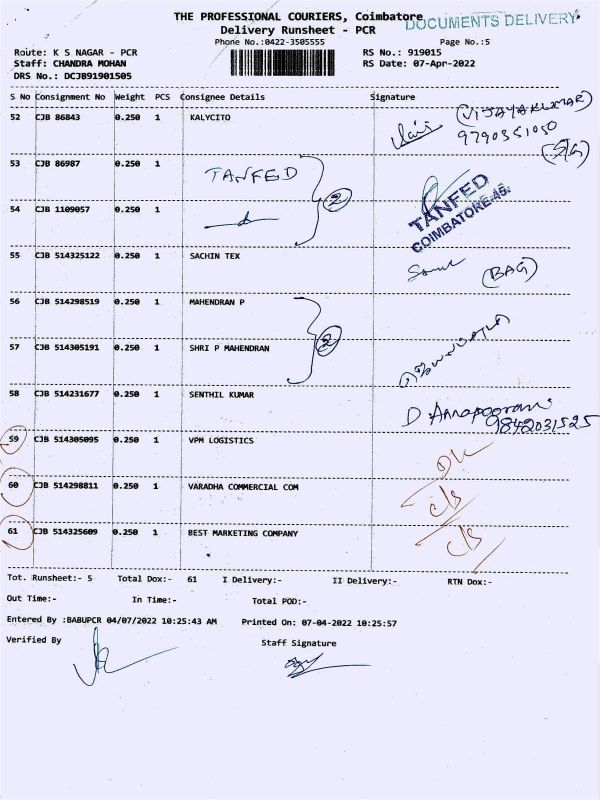 THE PROFESSIONAL COURIERS, Coimbatore
DOCUMENTS DELIVERY
Delivery Runsheet - PCR
Phone No.:0422-3505555
Page No.:5
Route: K S NAGAR - PCR
RS No.: 919015
Staff: CHANDRA MOHAN
RS Date: 07-Apr-2022
DRS No.: DCJ891901505
S No Consignment No Weight PCS Consignee Details Signature
52 CJB 86843 0.250 1 KALYCITO
(VIJAYAKUMAR)
9790351050
53 CJB 86987 0.250 1 TANFED
2
54 CJB 1109057 0.250 1
TANFED
COIMBATORE-46.
55 CJB 514325122 0.250 1 SACHIN TEX
(BAG)
56 CJB 514298519 0.250 1 MAHENDRAN P
2
57 CJB 514305191 0.250 1 SHRI P MAHENDRAN
58 CJB 514231677 0.250 1 SENTHIL KUMAR
D. Annapoorani
9842031525
59 CJB 514305095 0.250 1 VPM LOGISTICS
DL
60 CJB 514298811 0.250 1 VARADHA COMMERCIAL COM
C/S
61 CJB 514325609 0.250 1 BEST MARKETING COMPANY
C/S
Tot. Runsheet:- 5 Total Dox:- 61 I Delivery:- II Delivery:- RTN Dox:-
Out Time:- In Time:- Total POD:-
Entered By :BABUPCR 04/07/2022 10:25:43 AM Printed On: 07-04-2022 10:25:57
Verified By Staff Signature